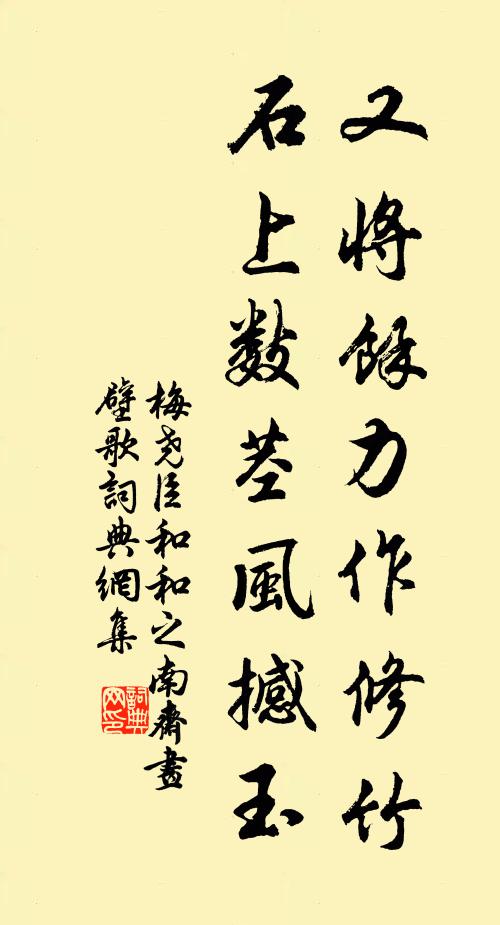 又將餘力作修竹
石上數茎風撼玉
梅尧臣和和之南齋畫
壁歌詞典網集
詞典
网印